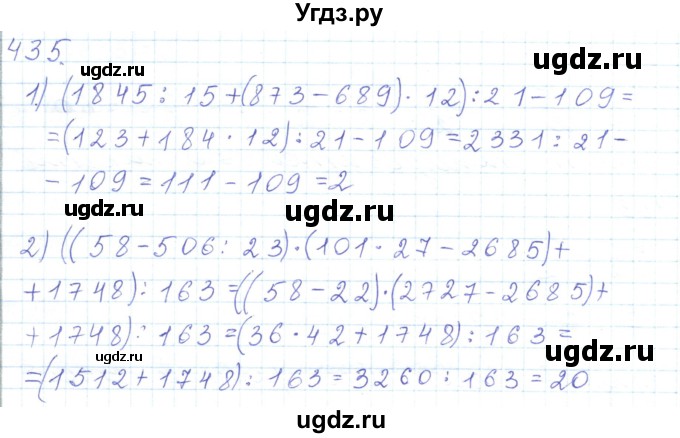 Угдз.ру
435.
ugdz.ru ugdz.ru
1) (1845 : 15 + (873 - 689) · 12) : 21 - 109 =
= (123 + 184 · 12) : 21 - 109 = 2331 : 21 -
ugdz.ru ugdz.ru
- 109 = 111 - 109 = 2
ugdz.ru
2) ((58 - 506 : 23) · (101 · 27 - 2685) +
ugdz.ru
+ 1748) : 163 = ((58 - 22) · (2727 - 2685) +
+ 1748) : 163 = (36 · 42 + 1748) : 163 =
ugdz.ru ugdz.ru
= (1512 + 1748) : 163 = 3260 : 163 = 20
ugdz.ru